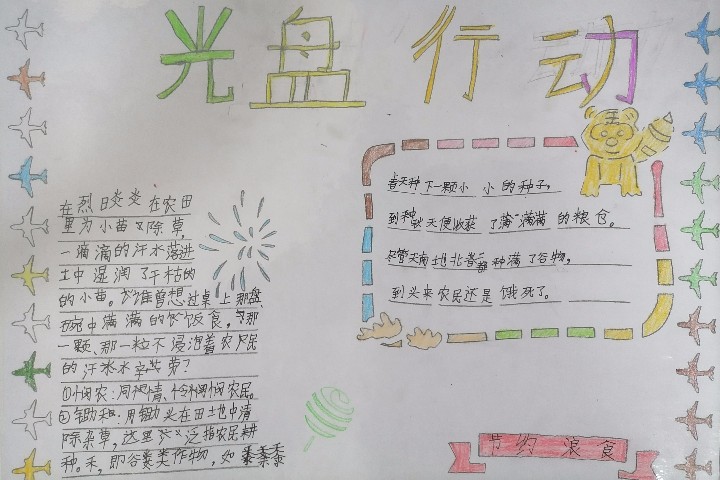 光盘行动
在烈日炎炎在农田
里为小苗 除草,
一滴滴的汗水落进
土中湿润了干枯的
的小苗。谁曾想过桌上那盘
碗中满满的饭食,那
一颗、那一粒不浸泡着农民
的汗水辛劳?
①悯农:同视情、怜悯农民。
②锄禾:用锄头在田土地中清
除杂草,这里泛指农民耕
种。禾,即谷类作物,如
春天种下一颗小小的种子,
到秋天便收获了满满的粮仓。
尽管天南地北都种满了谷物,
到头来农民还是饿死了。
节约 浪食